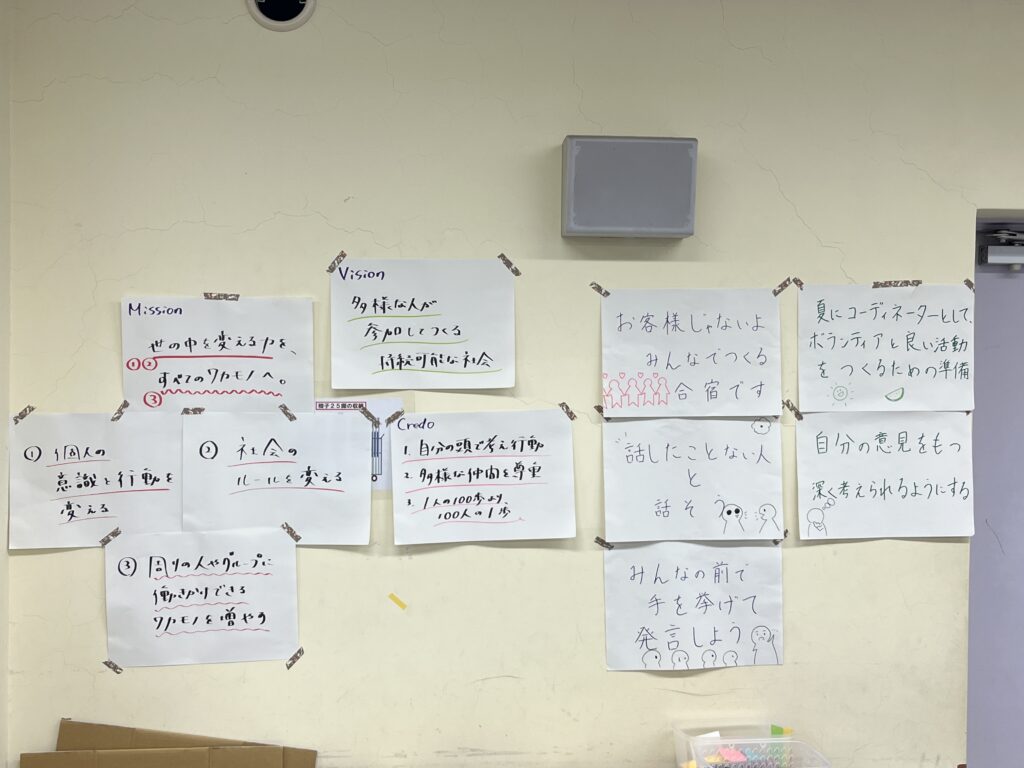 Mission
世の中を変える力を、
①②
すべてのワカモノへ。
③
Vision
多様な人が
参加してつくる
持続可能な社会
① 個人の
意識と行動を
変える
② 社会の
ルールを変える
③ 周りの人やグループに
働きかけできる
ワカモノを増やす
椅子25脚の収納
Credo
1. 自分の頭で考え行動
2. 多様な仲間を尊重
3. 1人の100歩より
100人の1歩
お客様じゃないよ
みんなでつくる
合宿です
話したことない人
と
話そう
みんなの前で
手を挙げて
発言しよう
夏にコーディネーターとして、
ボランティアと良い活動
をつくるための準備
自分の意見をもつ
深く考えられるようにする